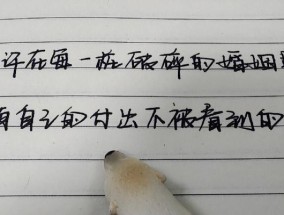 许在每一桩破碎的婚姻
有自己的付出不被看到的